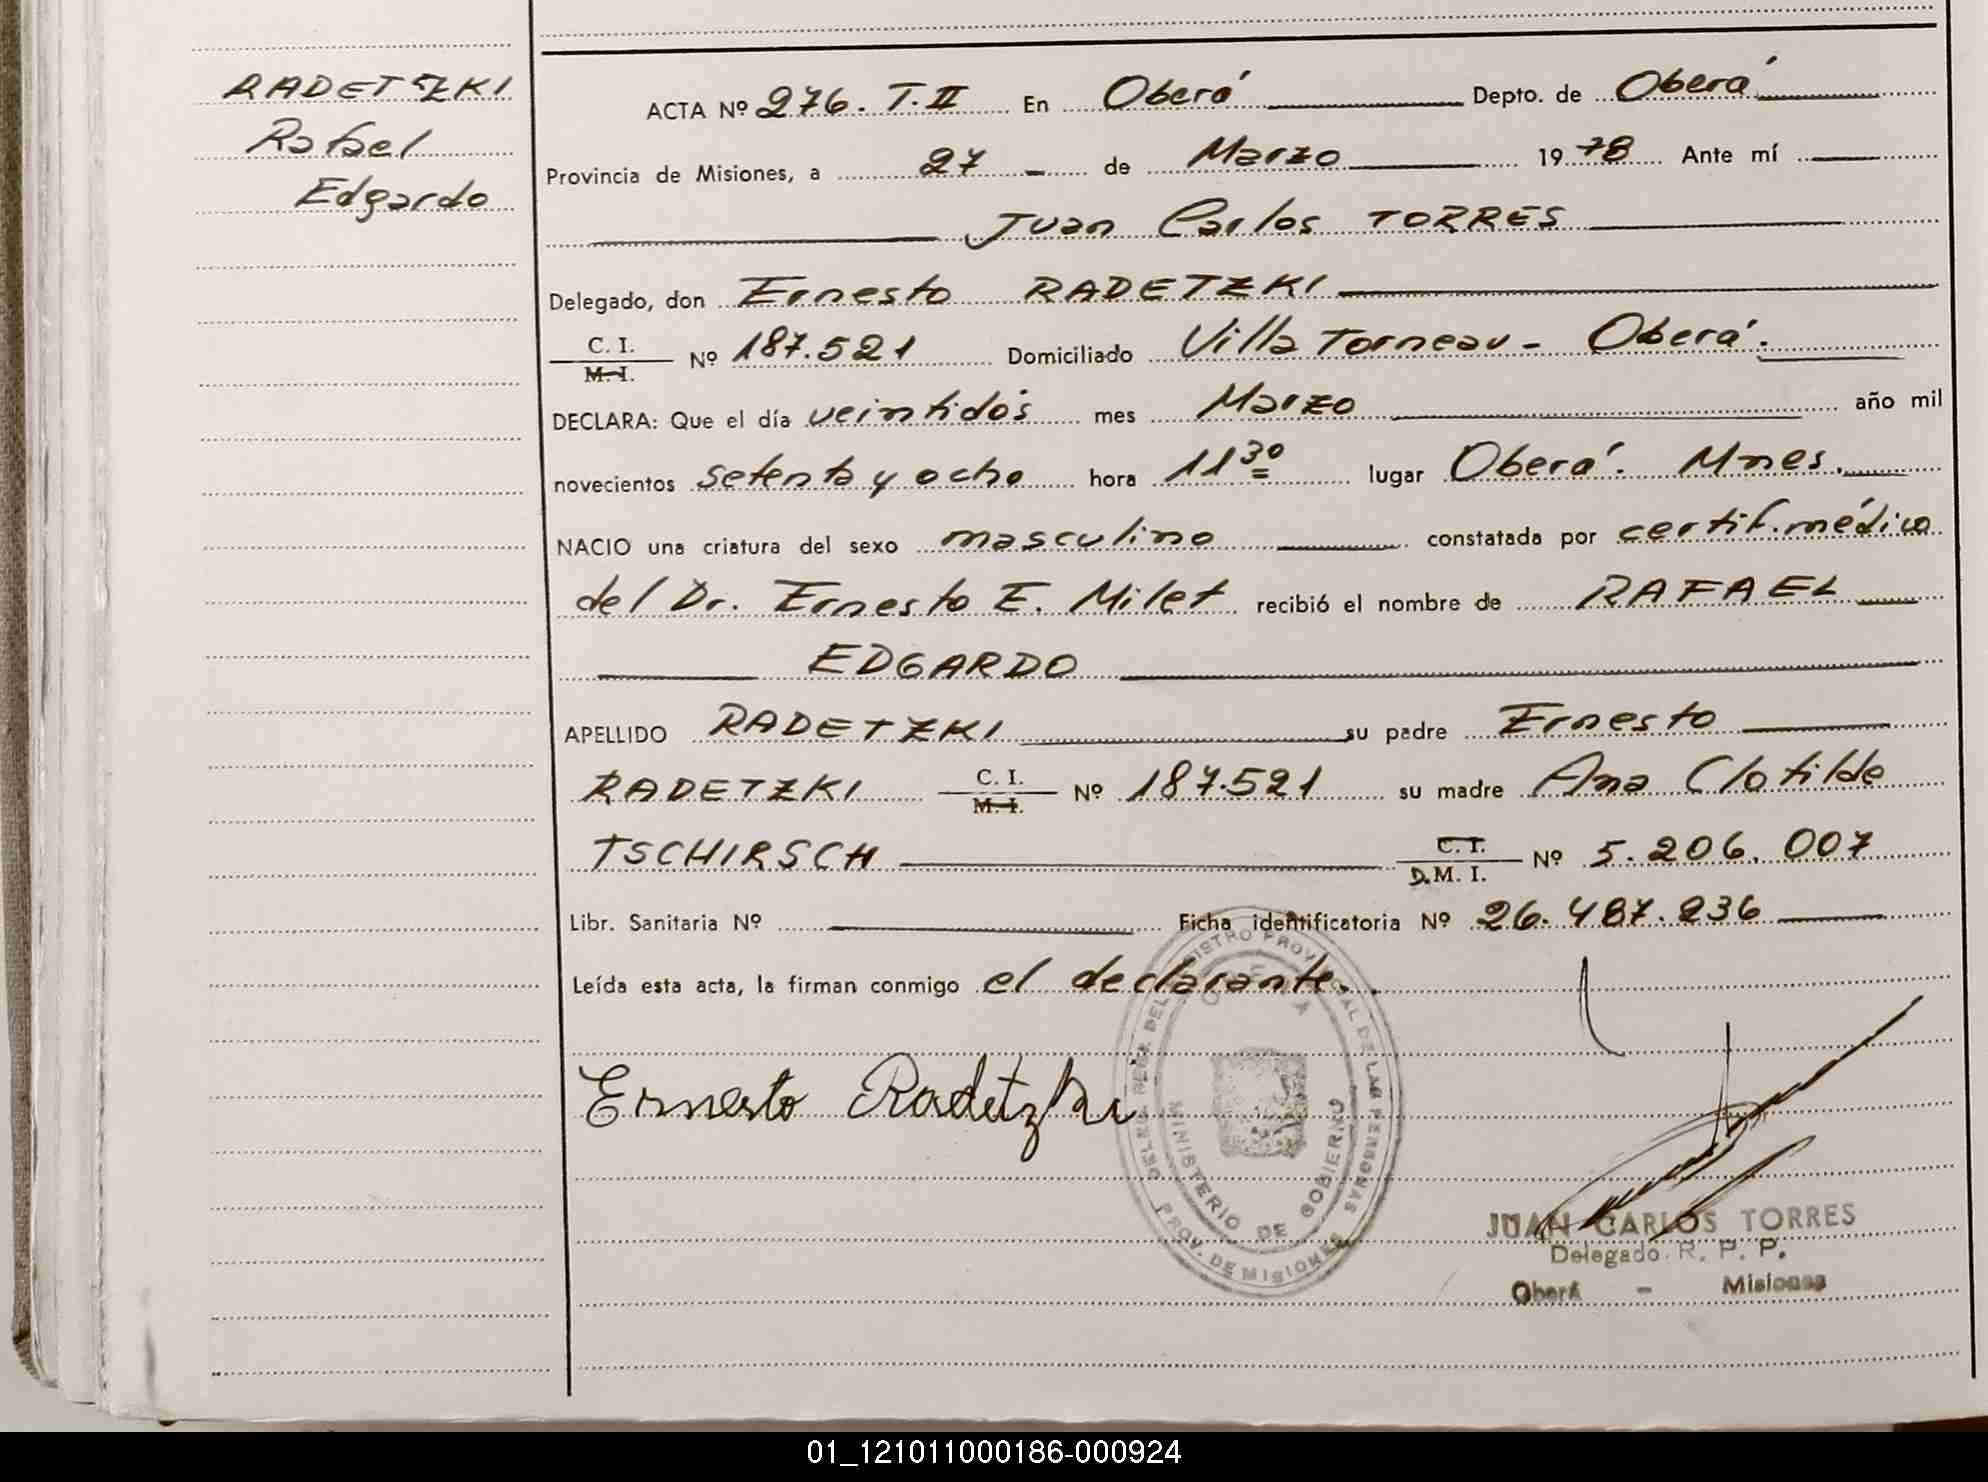 RADETZKI
Rafael
Edgardo
ACTA Nº 276. T. II En Oberá Depto. de Oberá
Provincia de Misiones, a 27 de Marzo 1978 Ante mí
Juan Carlos TORRES
Delegado, don Ernesto RADETZKI
C. I.
M. I. Nº 187.521 Domiciliado Villa Torneau - Oberá.
DECLARA: Que el día veintidós mes Marzo año mil
novecientos setenta y ocho hora 11 30 lugar Oberá. Mnes.
NACIO una criatura del sexo masculino constatada por certif. médico
del Dr. Ernesto E. Milet recibió el nombre de RAFAEL
EDGARDO
APELLIDO RADETZKI su padre Ernesto
RADETZKI C. I. M. I. Nº 187.521 su madre Ana Clotilde
TSCHIRSCH C. I. D.M. I. Nº 5.206.007
Libr. Sanitaria Nº Ficha identificatoria Nº 26.487.236
Leída esta acta, la firman conmigo el declarante.
Ernesto Radetzki
PROVINCIAL DE LAS PERSONAS
MINISTERIO DE GOBIERNO
PROV. DE MISIONES
JUAN CARLOS TORRES
Delegado R. P. P.
Oberá - Misiones
01_121011000186-000924